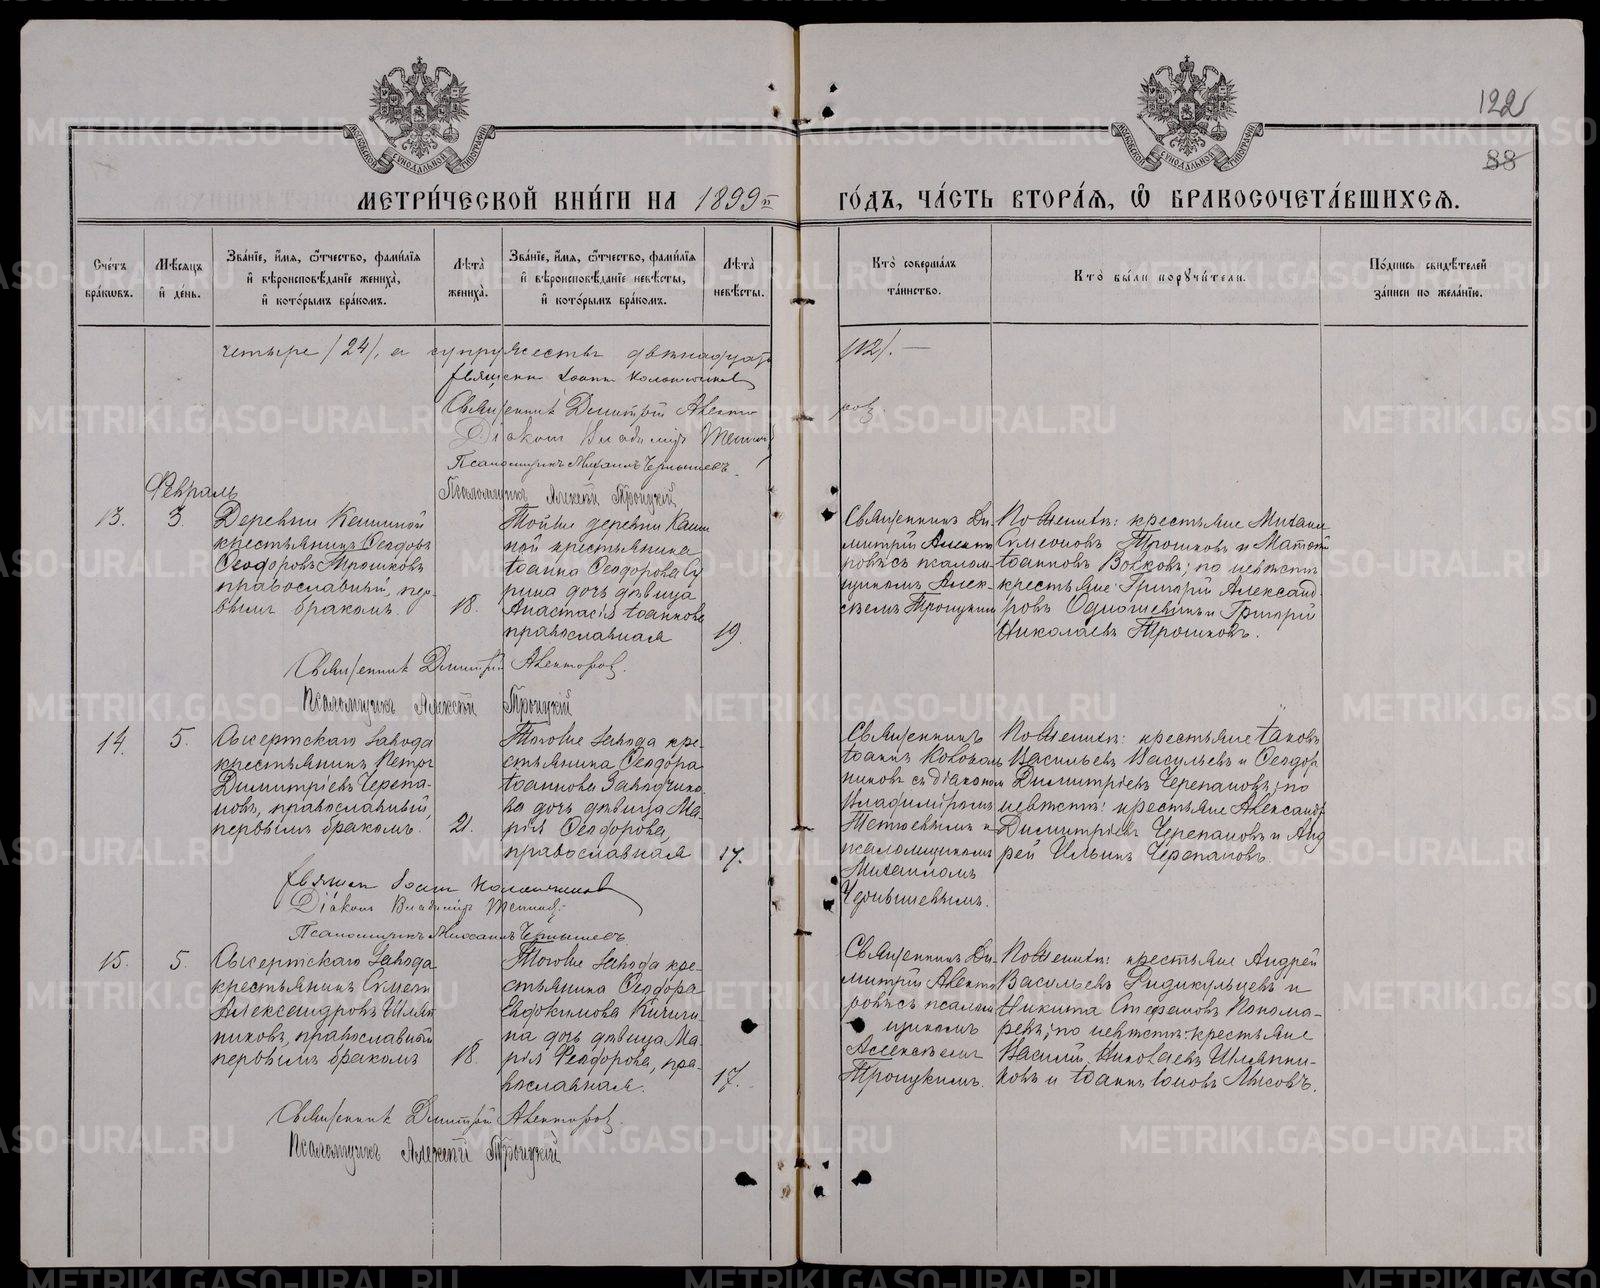 122
88
МЕТРИ́ЧЕСКОЙ КНИ́ГИ НА 1899й ГО́ДЪ, ЧА́СТЬ ВТОРА́Я, Ѡ БРАКОСОЧЕТА́ВШИХСЯ.
Сче́тъ бра́ковъ.
Мѣ́сяцъ и де́нь.
Зва́нїе, и́мя, ѻ҆́тчество, фами́лїя и҆ вѣроисповѣ́данїе жениха̀, и҆ кото́рымъ бра́комъ.
Лѣта̀ жениха̀.
Зва́нїе, и́мя, ѻ҆́тчество, фами́лїя и҆ вѣроисповѣ́данїе невѣ́сты, и҆ кото́рымъ бра́комъ.
Лѣта̀ невѣ́сты.
Кто̀ соверша́лъ та́инство.
Кто̀ бы́ли порꙋчи́тели.
По́дпись свидѣ́телей за́писи по жела́нїю.
четыре /24/, а супружествъ двѣнадцать /12/. —
Священ Іоаннъ Колокольниковъ
Священникъ Димитрій Авекторовъ.
Діаконъ Владиміръ
Псаломщикъ Михаилъ Чернышевъ.
Псаломщикъ Алексѣй Троицкій
Февраль
13.
3.
Деревни Кашиной
крестьянинъ Ѳеодоръ
Ѳеодоровъ Трошковъ
православный, пер-
вымъ бракомъ.
18.
Тойже деревни Каши
ной крестьянина
Іоанна Ѳеодорова Су
рина дочь дѣвица
Анастасія Іоаннова
православная
19.
Священникъ Ди
митрій Авекто
ровъ съ псалом
щикомъ Алек-
сѣемъ Троицкимъ
По женихѣ: крестьяне Михаилъ
Симеоновъ Трошковъ и Матѳей
Іоанновъ Волковъ; по невѣстѣ
крестьяне: Григорій Александ
ровъ Одношевинъ и Григорій
Николаевъ Трошковъ.
Священникъ Димитрій Авекторовъ.
Псаломщикъ Алексѣй Троицкій
14.
5.
Сысертскаго Завода
крестьянинъ Петръ
Димитріевъ Черепа-
новъ, православный,
первымъ бракомъ.
21.
Тогоже Завода кре-
стьянина Ѳеодора
Іоаннова Заводчико-
ва дочь дѣвица Ма-
рія Ѳеодорова,
православная
17.
Священникъ
Іоаннъ Колоколь
никовъ съ діакономъ
Владиміромъ
и
псаломщикомъ
Михаиломъ
Чернышевымъ.
По женихѣ: крестьяне Іаковъ
Васильевъ Васильевъ и Ѳеодоръ
Димитріевъ Черепановъ; по
невѣстѣ: крестьяне Александръ
Димитріевъ Черепановъ и Анд
рей Ильинъ Черепановъ.
Священ Іоаннъ Колокольниковъ
Діаконъ Владиміръ
Псаломщикъ Михаилъ Чернышевъ.
15.
5.
Сысертскаго Завода
крестьянинъ Симеонъ
Александровъ Шляп
никовъ, православный
первымъ бракомъ
18.
Тогоже Завода кре-
стьянина Ѳеодора
Евдокимова Кичиги-
на дочь дѣвица Ма-
рія Ѳеодорова, пра-
вославная.
17.
Священникъ Ди-
митрій Авекто
ровъ съ псалом
щикомъ
Алексѣемъ
Троицкимъ.
По женихѣ: крестьяне Андрей
Васильевъ Ридикульцевъ и
Никита Стефановъ Понома-
ревъ; по невѣстѣ: крестьяне
Василій Николаевъ Шляпни-
ковъ и Іоаннъ Іоновъ Лысовъ.
Священникъ Димитрій Авекторовъ.
Псаломщикъ Алексѣй Троицкій
METRIKI.GASO-URAL.RU